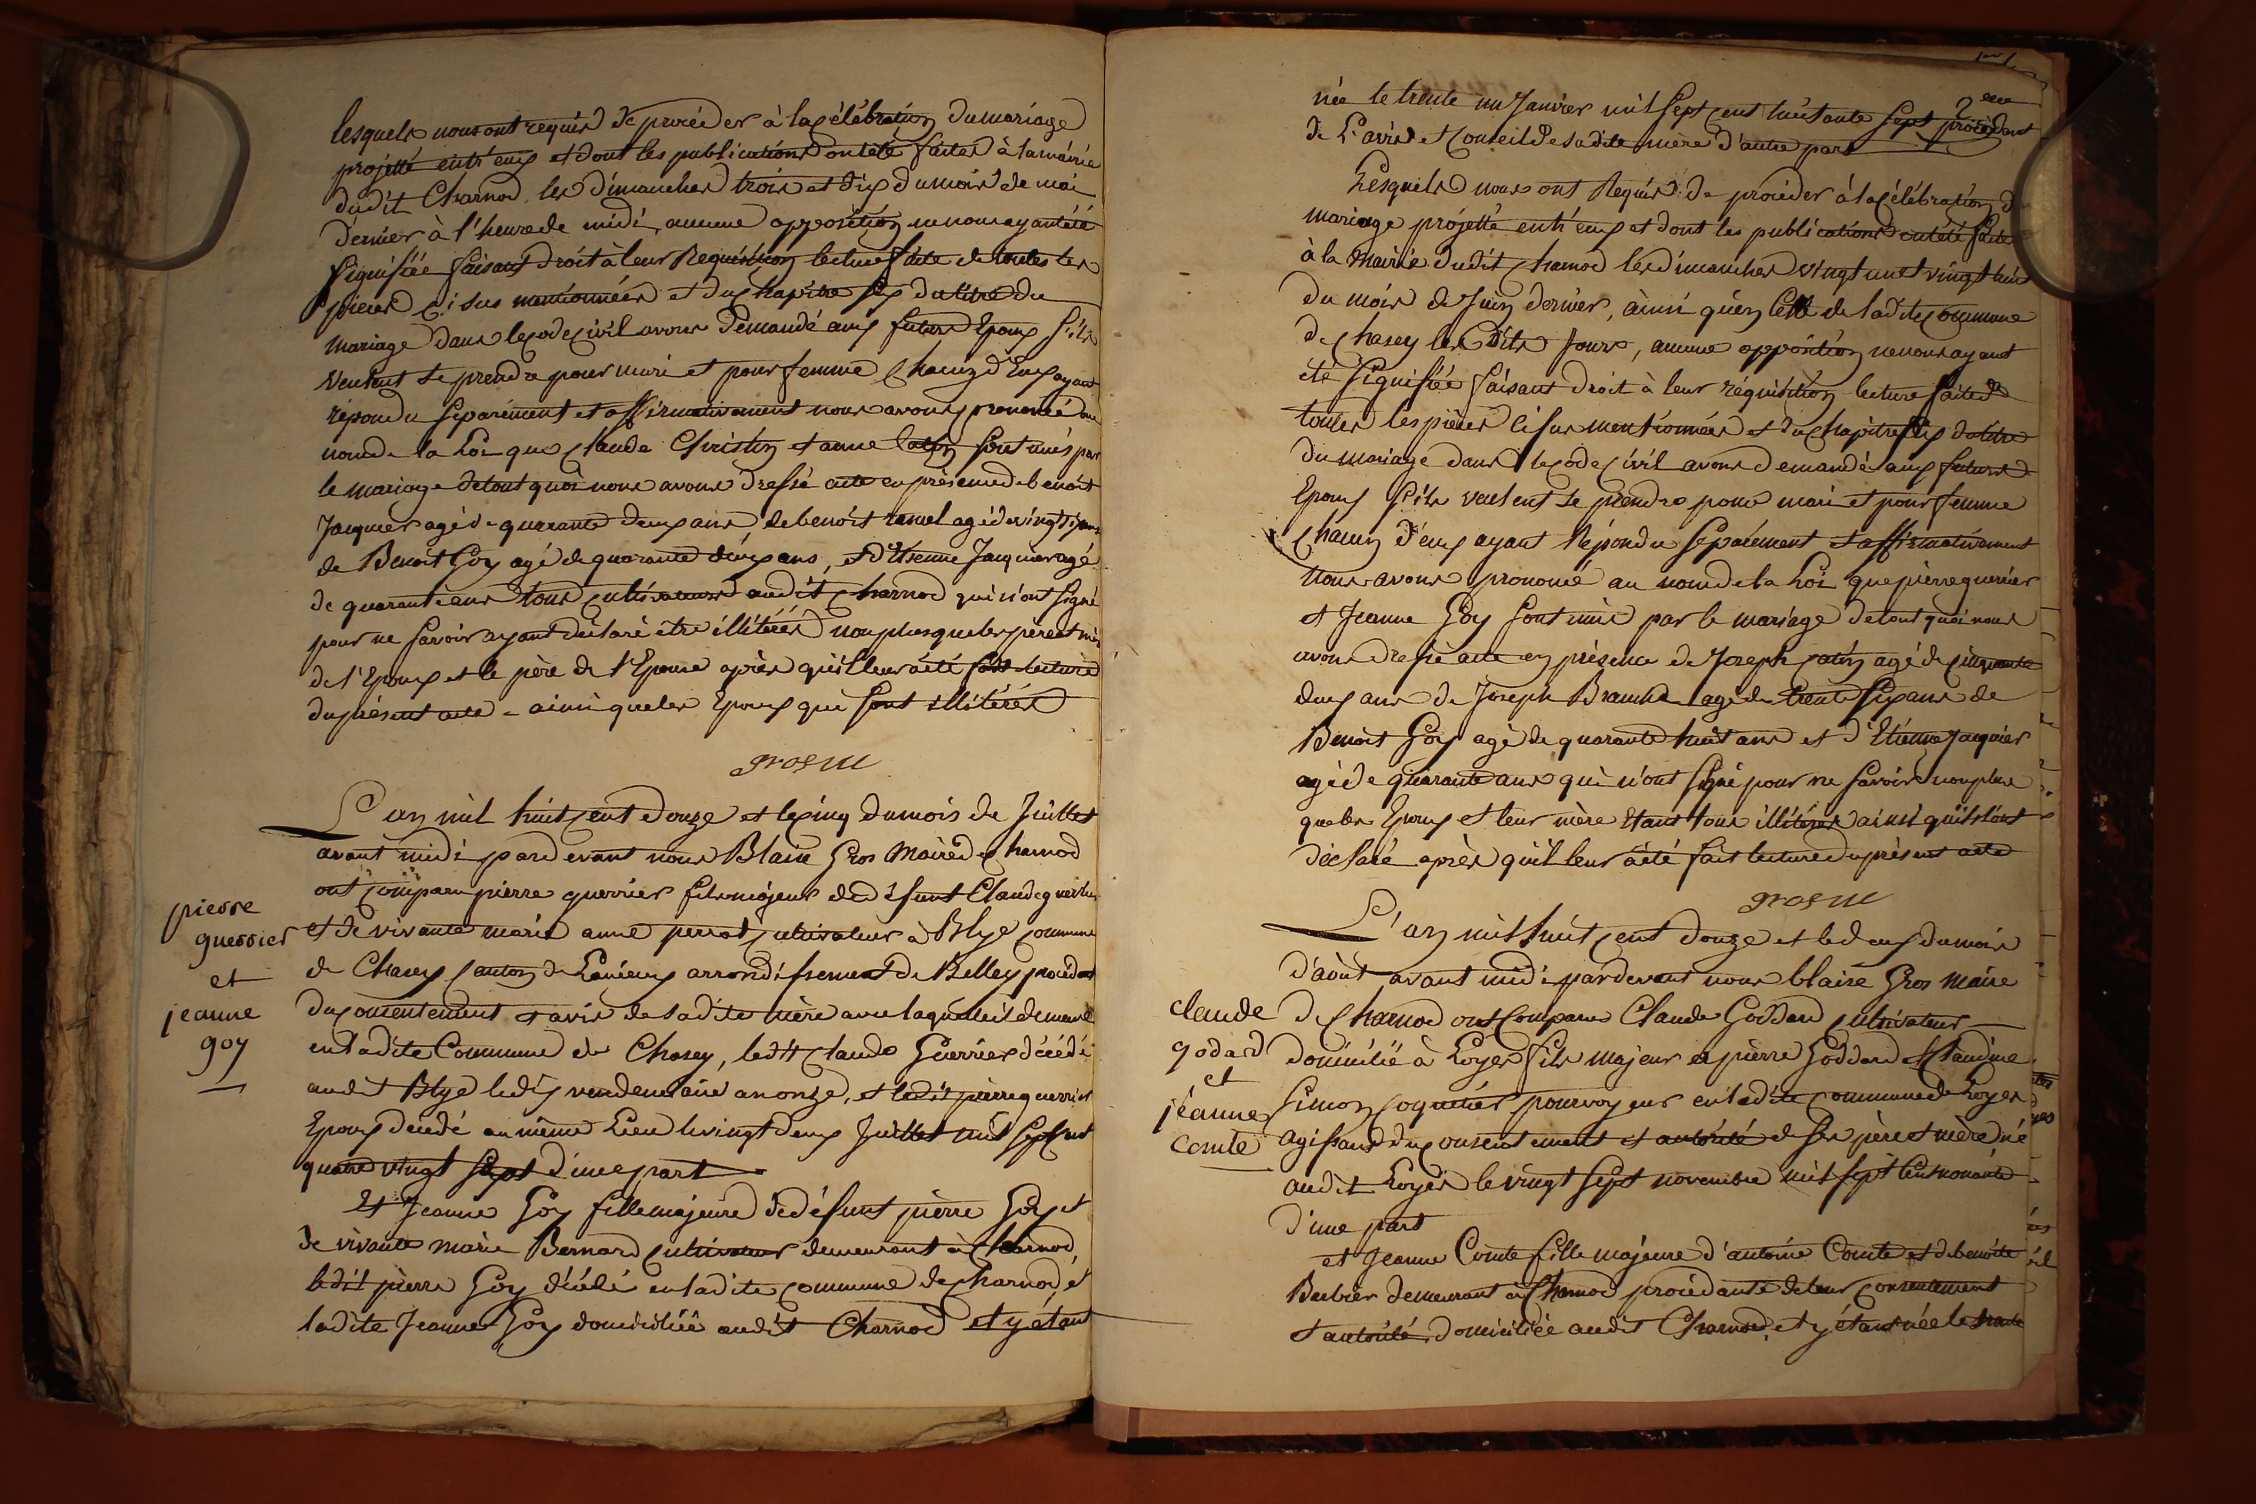 lesquels nous ont requis de procéder à la Célébration du mariage
projetté entr'eux et dont les publications ont été faites à la mairie
dudit Charnod les dimanches trois et dix du mois de mai
dernier à l'heure de midi, aucune opposition ne nous ayant été
signifiée faisant droit à leur Requisition lecture faite de toutes les
pièces ci sus mentionnées et du Chapitre six du titre du
mariage dans le Code Civil avons Demandé aux futurs Epoux s'ils
veulent se prendre pour mari et pour femme Chacun d'Eux ayant
répondu separément et affirmativement nous avons prononcé au
nom de la Loi que Claude Christin et anne sont unis par
le mariage de tout quoi nous avons dressé acte en présence de benoit
Jacquier agé de quarante deux ans de benoit agé de vingt
de Benoit Goy agé de quarante deux ans, et d'Etienne Jacquier agé
de quarante ans tous Cultivateurs audit Charnod qui n'ont signé
pour ne savoir ayant déclaré être illitérés non plus que les père et mère
de l'Epoux et le père de l'Epouse après qu'il leur a été fait lecture
du présent acte - ainsi que les Epoux qui sont illitérés
gros m
L'an mil huit Cent douze et le Cinq du mois de Juillet
avant midi pardevant nous Blaise Gros Maire de Charnod
ont Comparu pierre guerrier fils majeur de défunt Claude guerrier
et de vivante marie anne perrot Cultivateur à Blye Commune
de Chasey Canton de Lagnieux arrondissement de Belley procédant
du Consentement et avis de sadite mère avec laquelle il demeure
en ladite Commune de Chasey, ledit Claude Guerrier décédé
audit Blye le dix vendemiaire an onze, et ledit pierre guerrier
Epoux décédé au même Lieu le vingt deux Juillet mil sept Cent
quatre vingt sept d'une part
Et Jeanne Goy fille majeure de défunt pierre Goy et
de vivante marie Bernard Cultivateur demeurant à Charnod,
ledit pierre Goy décédé en ladite Commune de Charnod, et
ladite Jeanne Goy domiciliée audit Charnod et y étant
pierre
guerrier
et
jeanne
goy
née le trente un Janvier mil Sept Cent huitante Sept procédant
de L'avis et Conseil de sadite mère d'autre part
Lesquels nous ont Requis de procéder à la Célébration du
mariage projetté entr'eux et dont les publications ont été faites
à la Mairie dudit Charnod les dimanches vingt un et vingt huit
du mois de Juin dernier, ainsi qu'en Celle de ladite Commune
de Chasey les dits Jours, aucune opposition ne nous ayant
été signifiée faisant droit à leur réquisition lecture faite de
toutes les pièces ci sus mentionnées et du Chapitre six du titre
du mariage dans le Code Civil avons demandé aux futurs
Epoux s'ils veulent se prendre pour mari et pour femme
Chacun d'eux ayant Répondu séparément et affirmativement
nous avons prononcé au nom de la Loi que pierre guerrier
et Jeanne Goy sont unis par le mariage de tout quoi nous
avons dressé acte en présence de Joseph agé de Cinquante
deux ans de Joseph agé de trente six ans de
Benoit Goy agé de quarante huit ans et d'Etienne Jacquier
agé de quarante ans qui n'ont signé pour ne savoir non plus
que les Epoux et leur mère Etant tous illitérés ainsi qu'ils l'ont
déclaré après qu'il leur a été fait lecture du présent acte
gros m
L'an mil huit Cent douze et le deux du mois
d'août avant midi pardevant nous blaise Gros Maire
de Charnod ont Comparu Claude Goddard Cultivateur
domicilié à Loyes fils majeur de pierre Goddard et Claudine
Simon Coquetier pourvoyeur en ladite Commune de Loyes
agissant du Consentement et autorité de ses père et mère né
audit Loyes le vingt sept novembre mil sept Cent nonante
d'une part
et Jeanne Comte fille majeure d'antoine Comte et de benoite
Barbier demeurant à Charnod procédante de leur Consentement
et autorité, domiciliée audit Charnod, et y étant née le trente
claude
godard
et
jéanne
comte